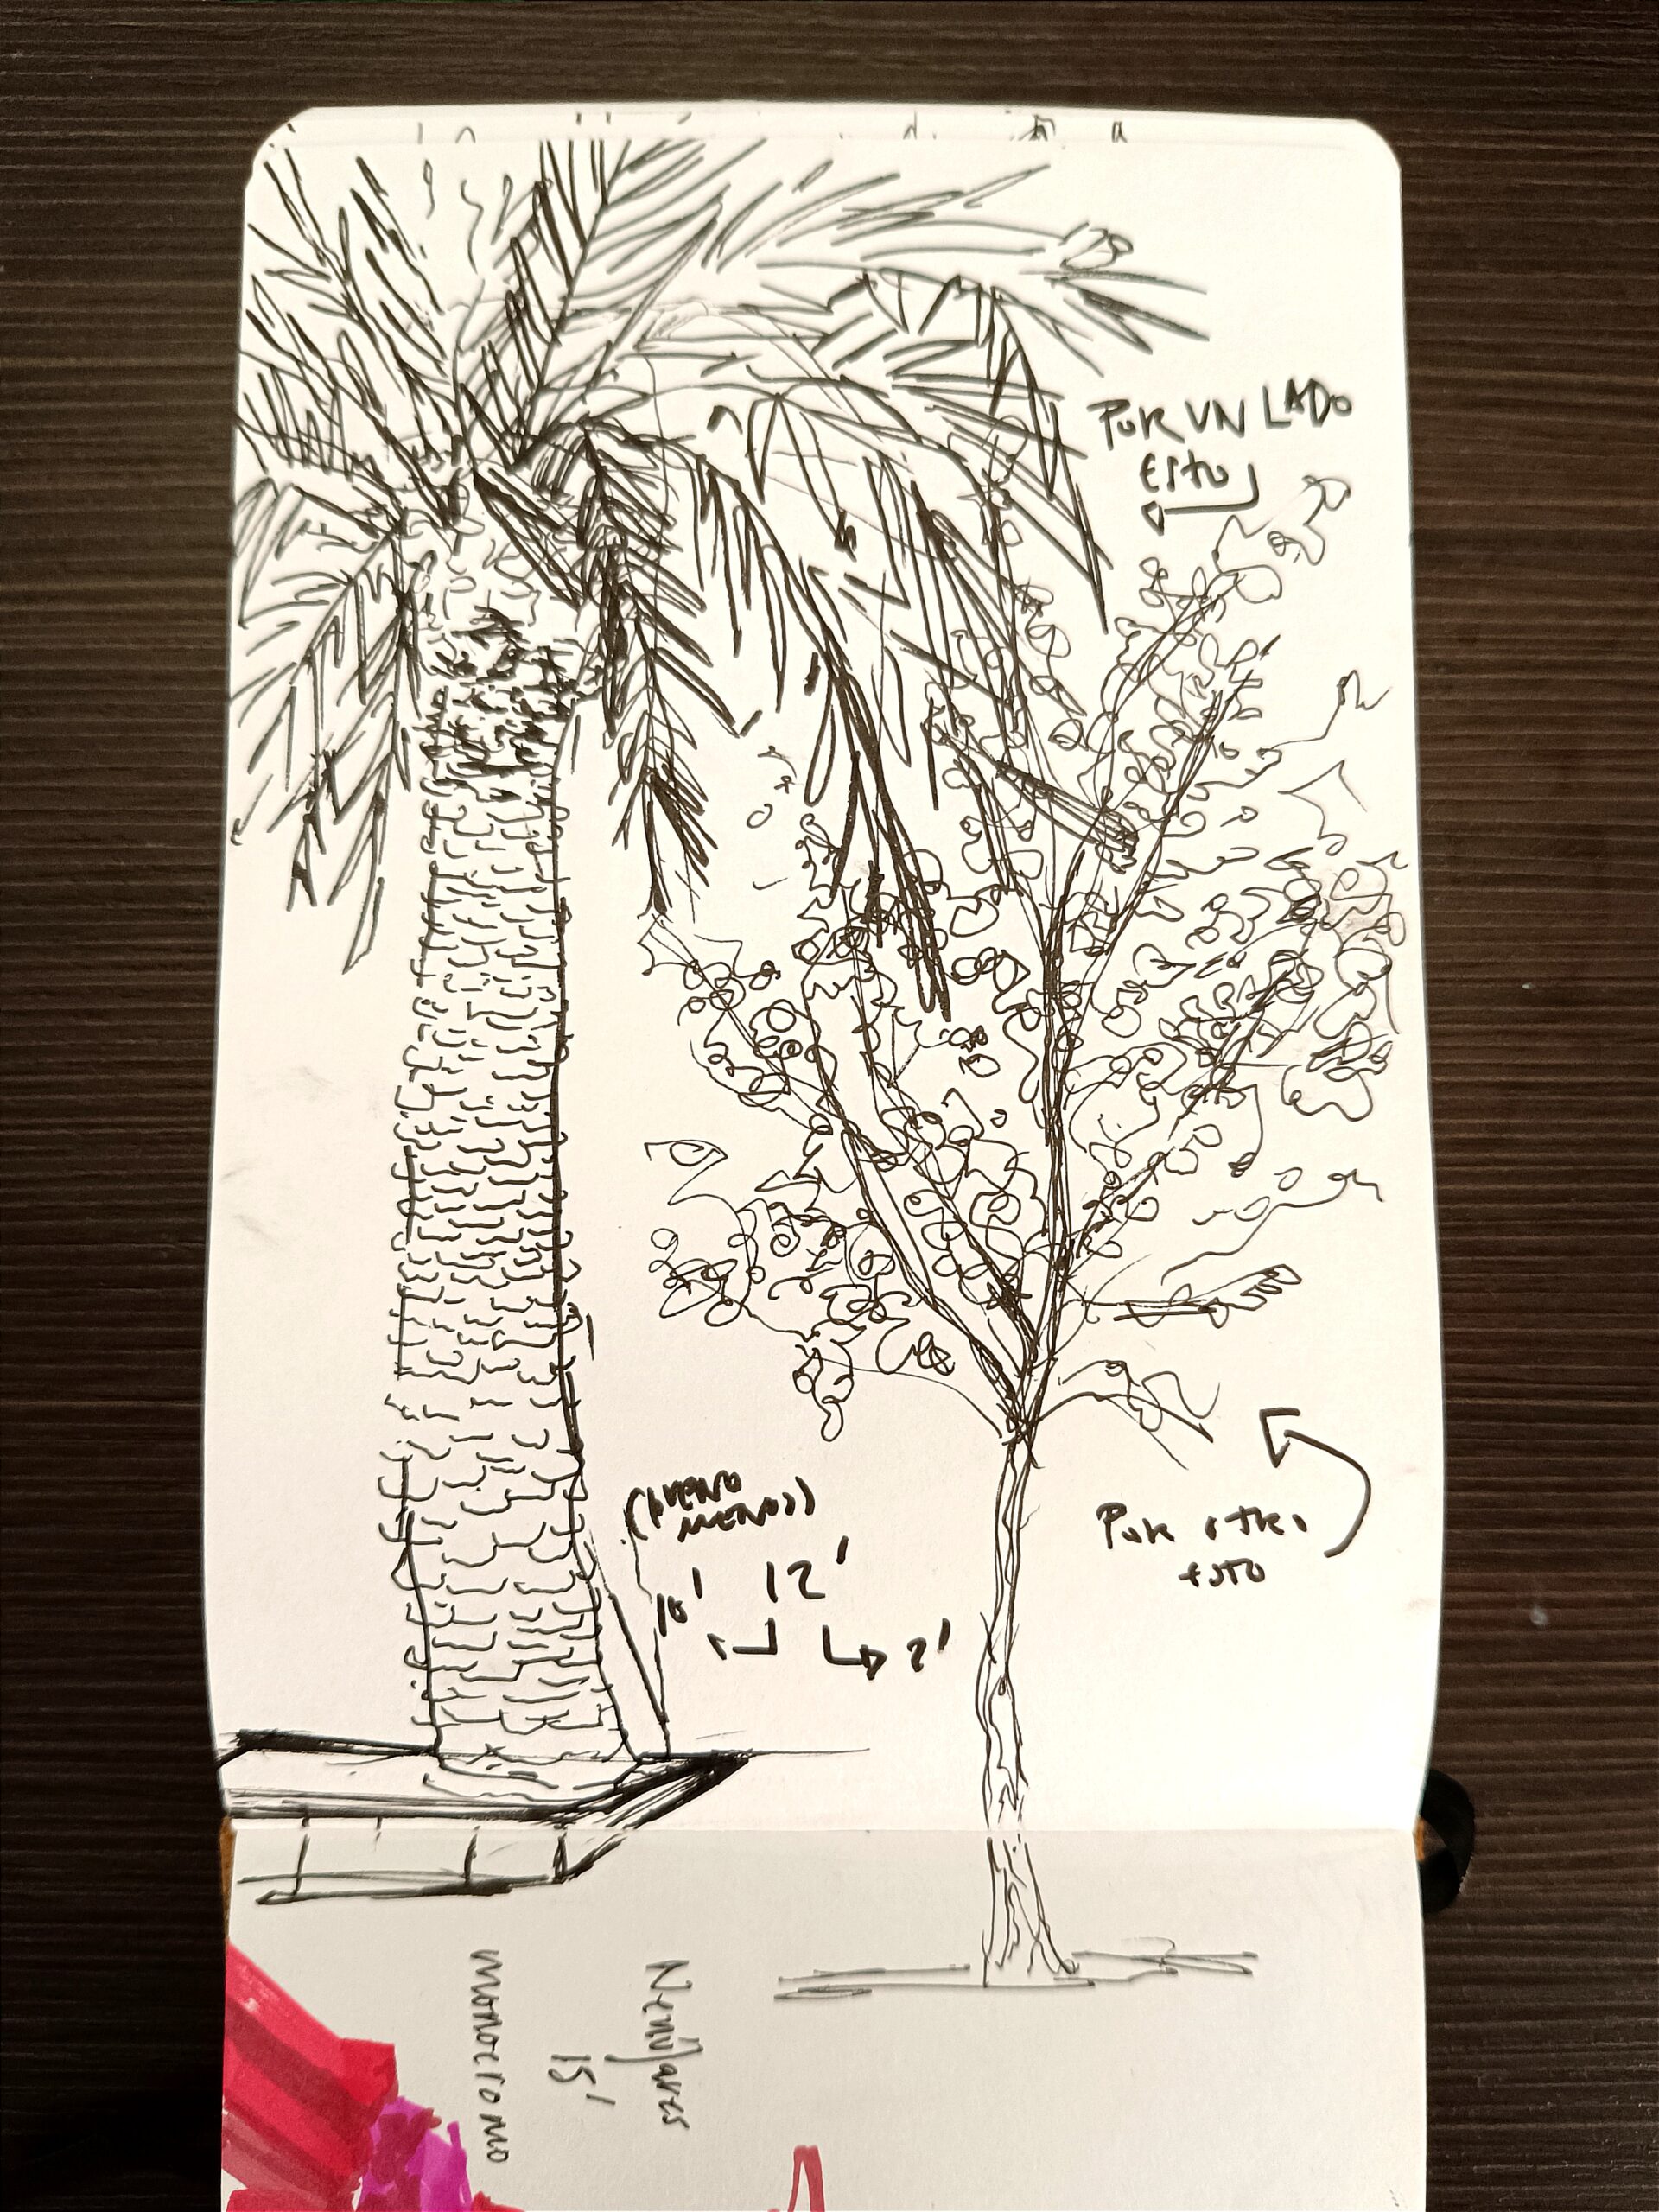 POR UN LADO
ESTO
(BUENO
MENOS)
10' 12'
2'
POR OTRO
ESTO
Nenúfares
15'
monocromo